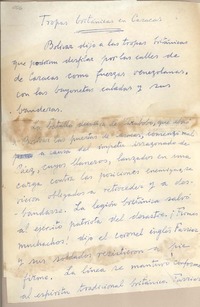 Tropas británicas en Caracas
Bolívar dijo a las tropas británicas
que podían desfilar por las calles de
de Caracas como fuerzas venezolanas,
con las bayonetas caladas y sus
banderas.
La batalla de Carabobo, que
a causa del ímpetu arrogante de
Páez, cuyos llaneros, lanzados en una
carga contra las posiciones enemigas se
vieron obligados a retroceder y a des-
bandarse. La legión británica salvó
al ejército patriota del desastre. ¡Firmes
muchachos! dijo el coronel inglés Farriar
y sus soldados
firme. La línea se mantuvo
al espíritu tradicional británico